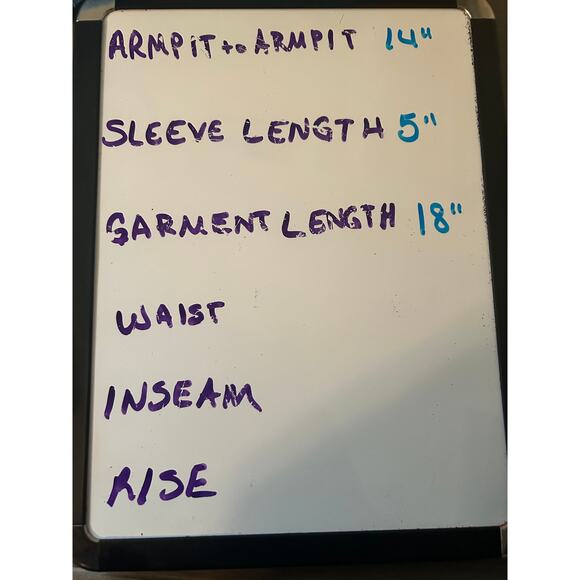 ARMPIT to ARMPIT 14"
SLEEVE LENGTH 5"
GARMENT LENGTH 18"
WAIST
INSEAM
RISE